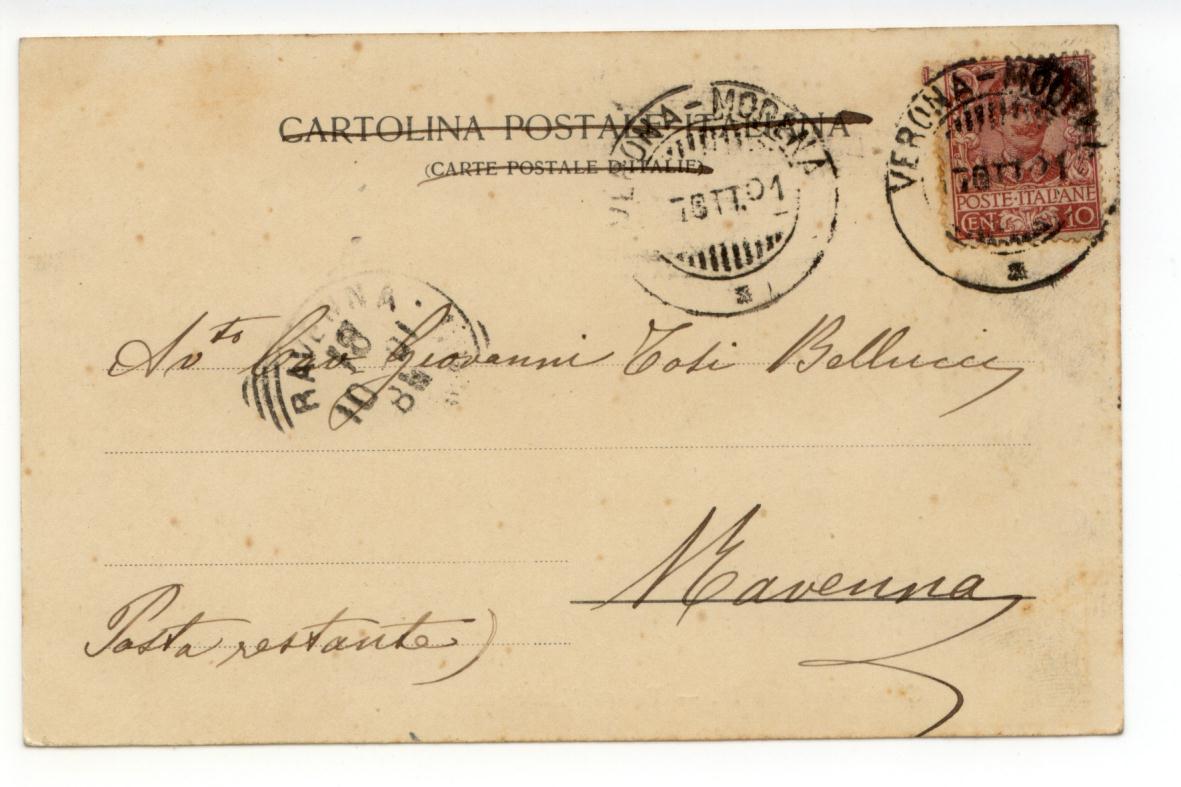 CARTOLINA POSTALE ITALIANA
(CARTE POSTALE D'ITALIE)
VERONA-MODENA
7 OTT. 01
VERONA-MODENA
7 OTT. 01
POSTE·ITALIANE
CEN. 10
RAVENNA
10
Av.to Cav Giovanni Tosi Bellucci
Ravenna
Posta restante)